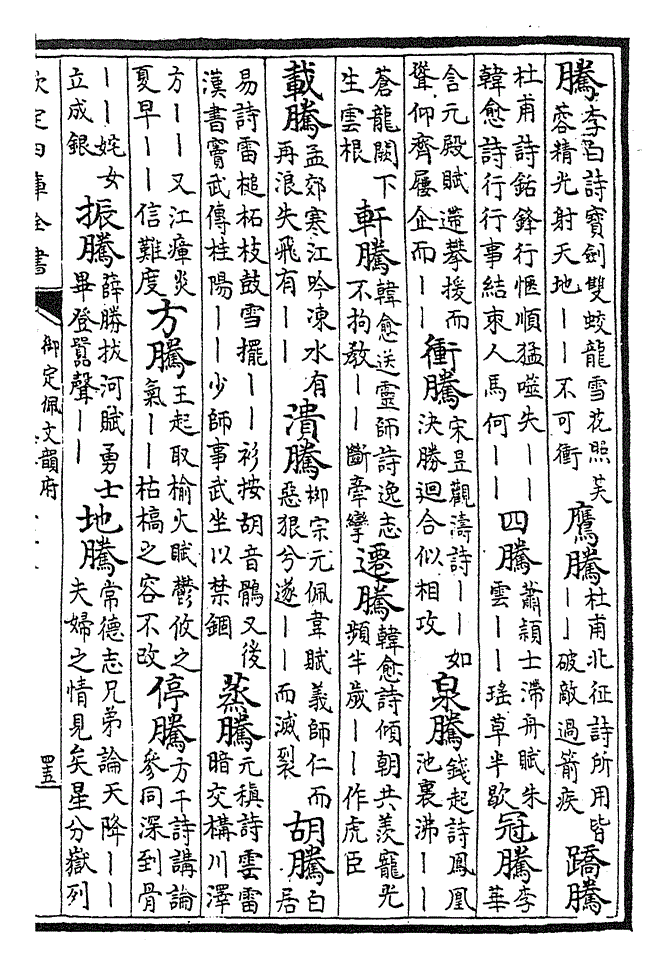 騰李白詩寶劍雙蛟龍雪花照芙蓉精光射天地丨丨不可衝 鷹騰杜甫北征詩所用皆丨丨破敵過箭疾 蹻騰
杜甫詩銛鋒行愜順猛噬失丨丨韓愈詩行行事結束人馬何丨丨 四騰蕭頴士滯舟賦朱雲丨丨瑤草半歇 冠騰李華
含元殿賦遞攀援而聳仰齊屢企而丨丨 衝騰宋昱觀濤詩丨丨如決勝迴合似相攻 泉騰錢起詩鳳凰池裏沸丨丨
蒼龍闕下生雲根 軒騰韓愈送靈師詩逸志不拘教丨丨斷牽攣 遷騰韓愈詩傾朝共羨寵光頻半歲丨丨作虎臣
載騰孟郊寒江吟凍水有再浪失飛有丨丨 潰騰柳宗元佩韋賦義師仁而惡狠兮遂丨丨而滅裂 胡騰白居
易詩雷槌柘枝鼓雪擺丨丨衫按胡音鶻又後漢書竇武傳桂陽丨丨少師事武坐以禁錮 蒸騰元稹詩雲雷暗交構川澤
方丨丨又江瘴炎夏早丨丨信難度 方騰王起取榆火賦鬱攸之氣丨丨枯槁之容不改 停騰方干詩講論參同深到骨
丨丨姹女立成銀 振騰薛勝拔河賦勇士畢登囂聲丨丨 地騰常德志兄弟論天降丨丨夫婦之情見矣星分嶽列
欽定四庫全書 御定佩文韻府 四五